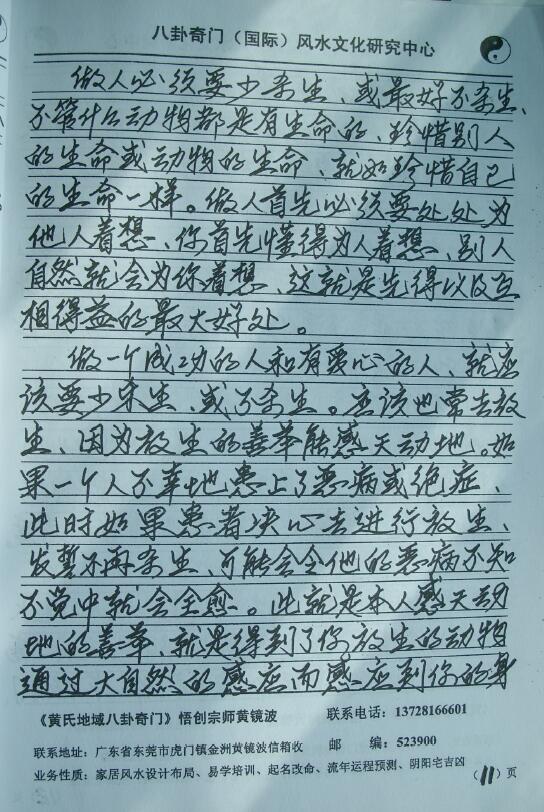 八卦奇门（国际）风水文化研究中心
做人必须要少杀生、或最好不杀生、
不管什么动物都是有生命的、珍惜别人
的生命或动物的生命、就如珍惜自己
的生命一样。做人首先必须要处处为
他人着想、你首先懂得为人着想、别人
自然就会为你着想、这就是先得以及互
相得益的最大好处。
做一个成功的人和有爱心的人、就应
该要少杀生、或不杀生。应该也常去放
生、因为放生的善举能感天动地。如
果一个人不幸地患上了恶病或绝症、
此时如果患者决心去进行放生、
发誓不再杀生、可能会令他的恶病不知
不觉中就会全愈。此就是本人感天动
地的善举、就是得到了你放生的动物
通过大自然的感应而感应到你的身
《黄氏地域八卦奇门》悟创宗师黄镜波 联系电话：13728166601
联系地址：广东省东莞市虎门镇金洲黄镜波信箱收 邮 编：523900
业务性质：家居风水设计布局、易学培训、起名改命、流年运程预测、阴阳宅吉凶 （11）页